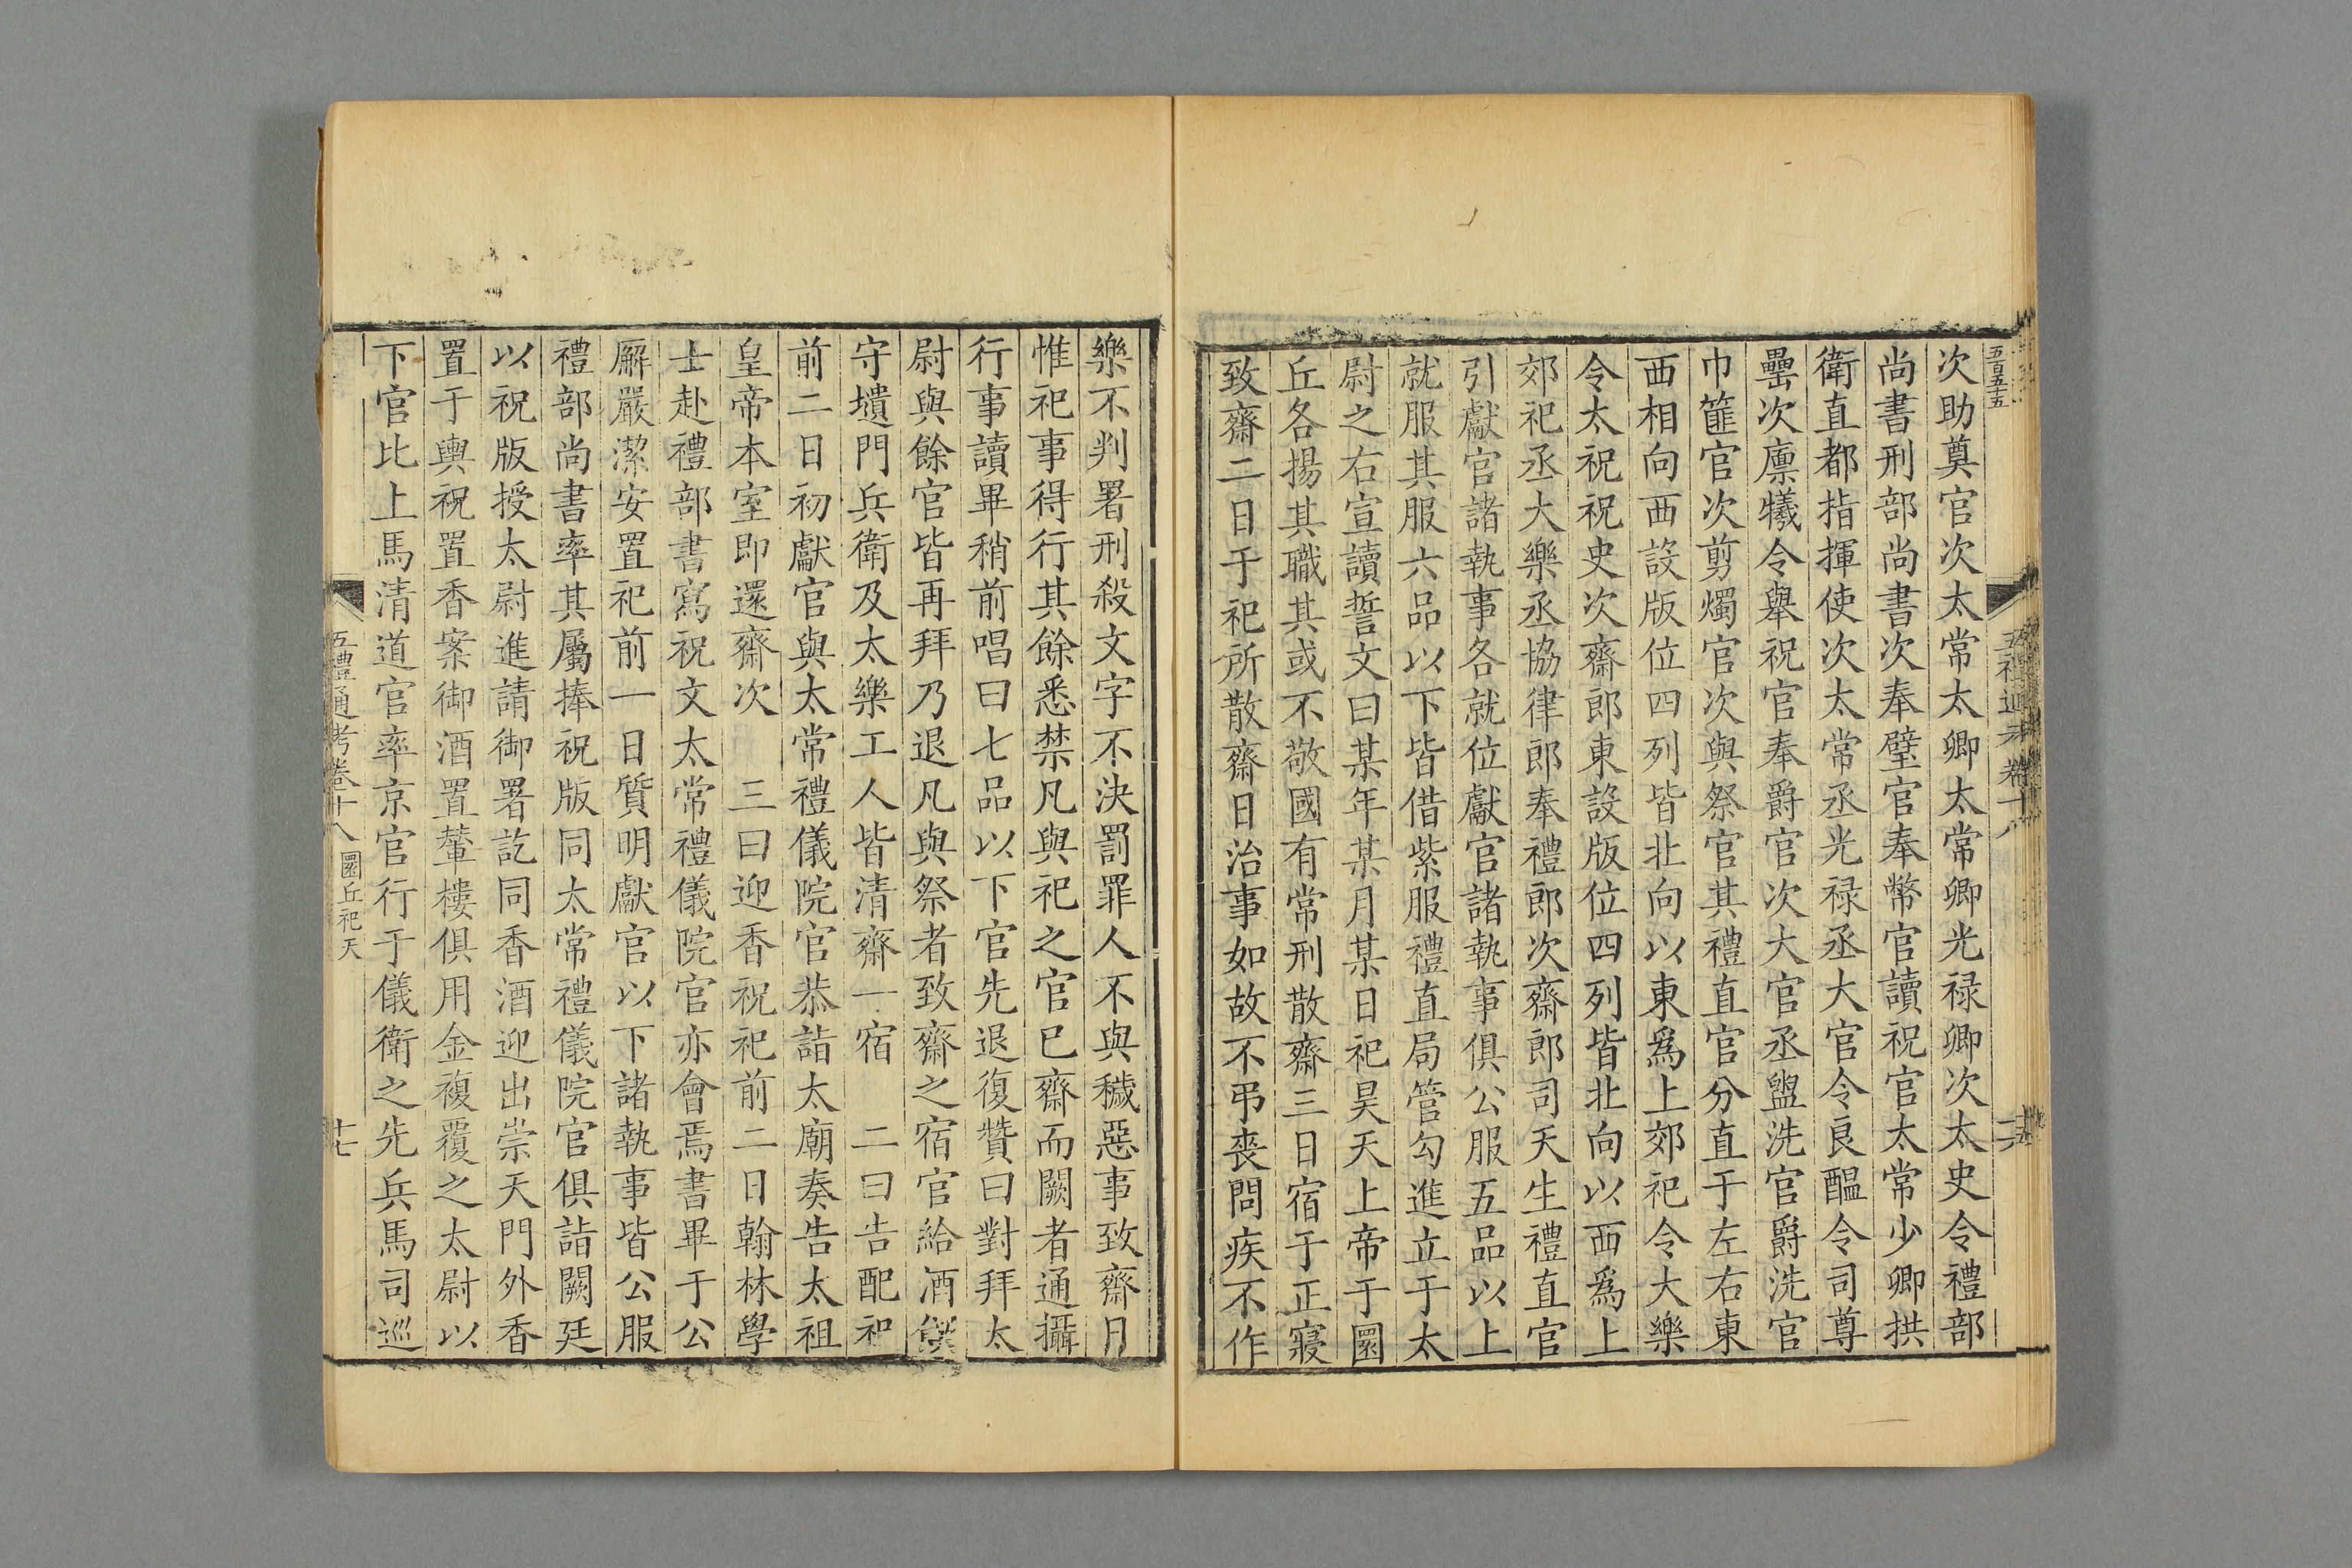 五百五十五
次助奠官次太常太卿太常卿光禄卿次太史令禮部
尚書刑部尚書次奉璧官奉幣官讀祝官太常少卿拱
衛直都指揮使次太常丞光禄丞大官令良醞令司尊
罍次廪犧令舉祝官奉爵官次大官丞盥洗官爵洗官
巾篚官次剪燭官次與祭官其禮直官分直于左右東
西相向西設版位四列皆北向以東爲上郊祀令大樂
令太祝祝史次齋郎東設版位四列皆北向以西爲上
郊祀丞大樂丞協律郎奉禮郎次齋郎司天生禮直官
引獻官諸執事各就位獻官諸執事俱公服五品以上
就服其服六品以下皆借紫服禮直局管勾進立于太
尉之右宣讀誓文曰某年某月某日祀昊天上帝于圜
丘各揚其職其或不敬國有常刑散齋三日宿于正寢
致齋二日于祀所散齋日治事如故不弔喪問疾不作
樂不判署刑殺文字不決罰罪人不與穢惡事致齋日
惟祀事得行其餘悉禁凡與祀之官已齋而闕者通攝
行事讀畢稍前唱曰七品以下官先退復贊曰對拜太
尉與餘官皆再拜乃退凡與祭者致齋之宿官給酒饌
守壝門兵衛及太樂工人皆清齋一宿　二曰告配祀
前二日初獻官與太常禮儀院官恭詣太廟奏告太祖
皇帝本室即還齋次　三曰迎香祝祀前二日翰林學
士赴禮部書寫祝文太常禮儀院官亦會焉書畢于公
廨嚴潔安置祀前一日質明獻官以下諸執事皆公服
禮部尚書率其屬捧祝版同太常禮儀院官俱詣闕廷
以祝版授太尉進請御署訖同香酒迎出崇天門外香
置于輿祝置香案御酒置輦樓俱用金複覆之太尉以
下官比上馬清道官率京官行于儀衛之先兵馬司巡
五禮通考卷十八　圜丘祀天　十七